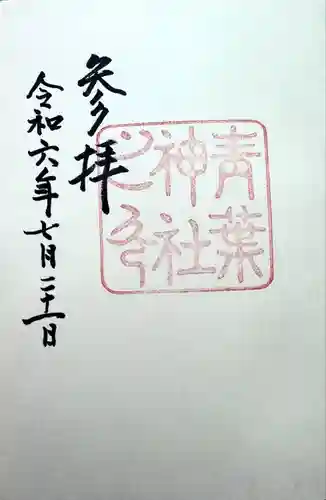 参拝
青葉
神社
之印
令和六年七月二十一日